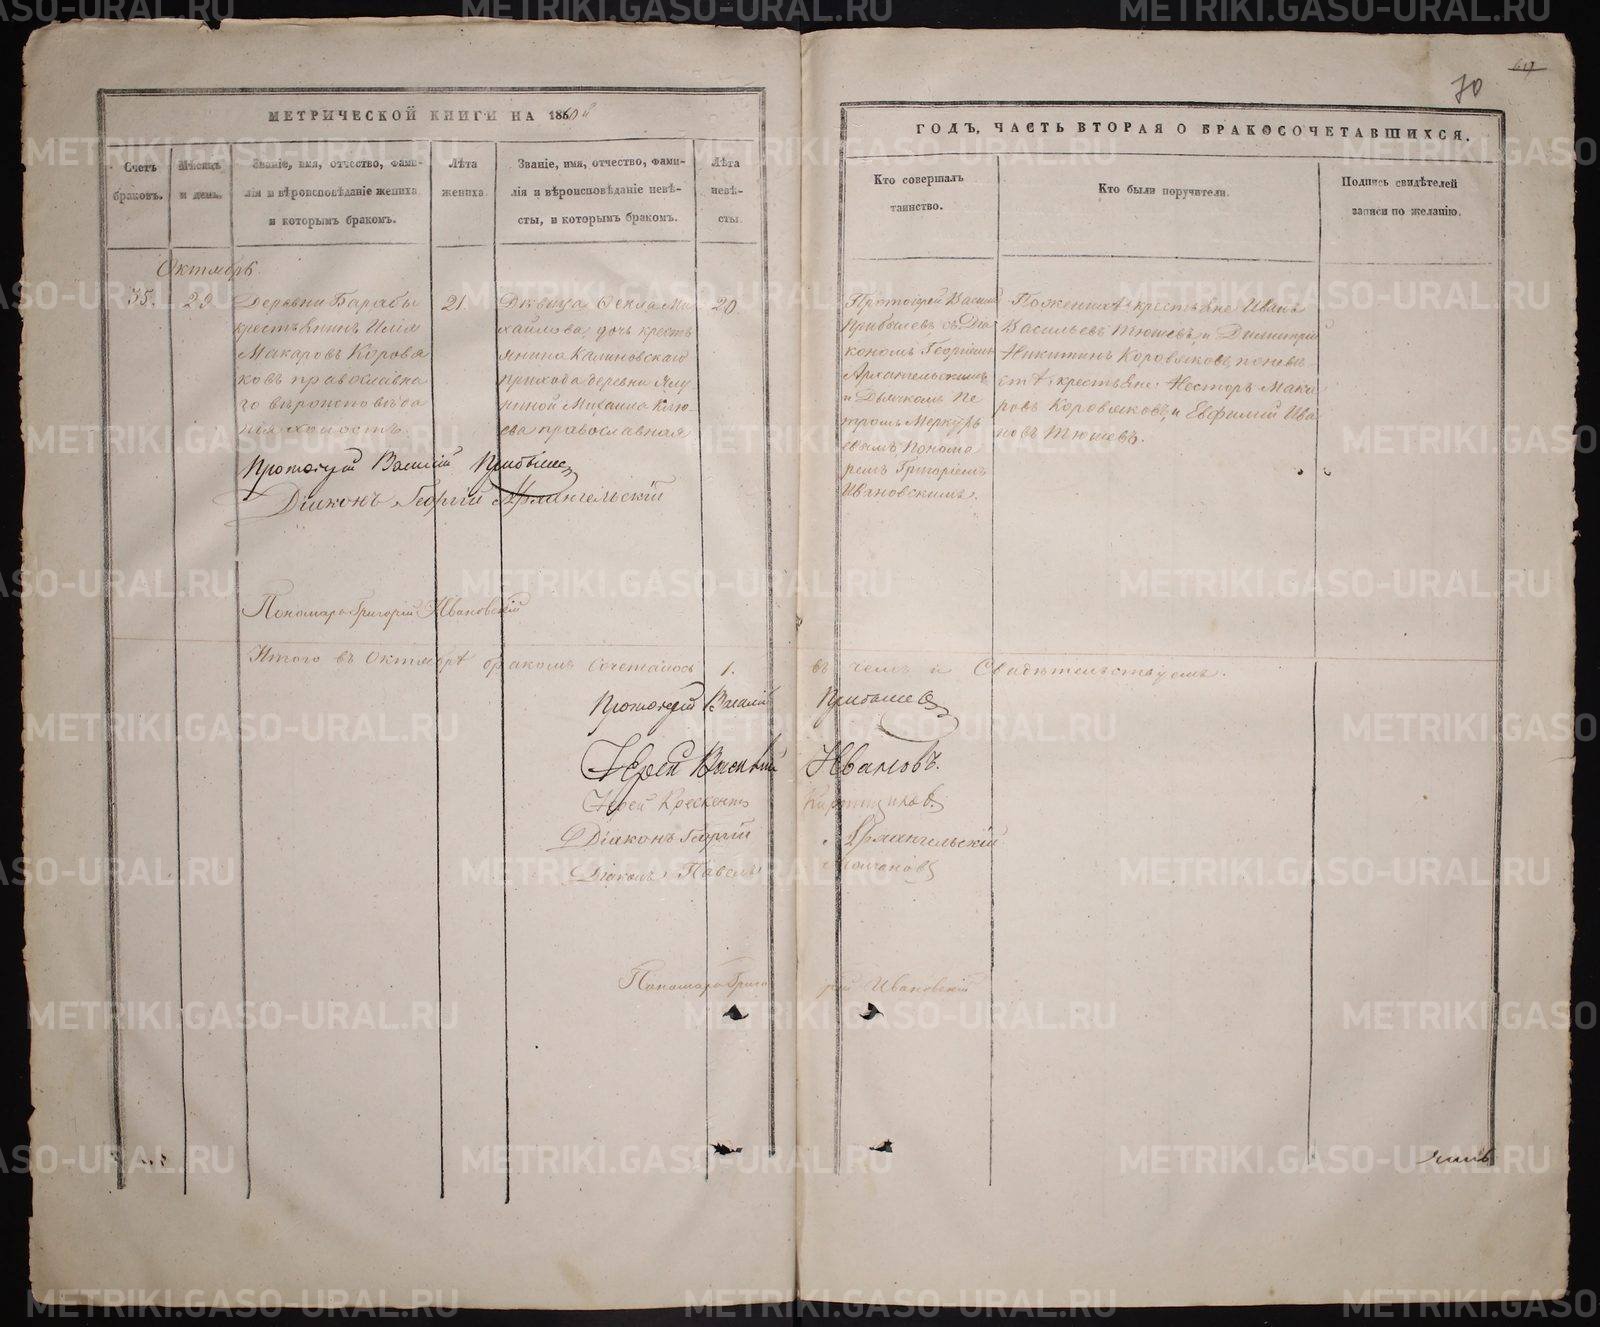 70
МЕТРИЧЕСКОЙ КНИГИ НА 186
ГОДЪ, ЧАСТЬ ВТОРАЯ О БРАКОСОЧЕТАВШИХСЯ.
Счетъ браковъ.
Мѣсяцъ и день.
Званіе, имя, отчество, фами-
лія и вѣроисповѣданіе жениха
и которымъ бракомъ.
Лѣта
жениха.
Званіе, имя, отчество, фами-
лія и вѣроисповѣданіе невѣ-
сты, и которымъ бракомъ.
Лѣта
невѣ-
сты.
Кто совершалъ
таинство.
Кто были поручители.
Подпись свидѣтелей
записи по желанію.
Октябрь.
35.
29.
Деревни Барабы
крестьянинъ Илія
Макаровъ Коровя
ковъ православна
го вѣроисповѣда
нія холостъ.
21.
Дѣвица Фекла Ми
хайлова, дочь кресть
янина Калиновскаго
прихода деревни Ялу
ниной Михаила Клю-
ева православная
20.
Протоіерей Василій
Прибылевъ съ Діа
кономъ Георгіемъ
Архангельскимъ
и Дьячкомъ Пе
тромъ Меркурь
евымъ, Понома
ремъ Григоріемъ
Ивановскимъ.
По женихѣ: крестьяне Иванъ
Васильевъ Тюшевъ, и Димитрій
Никитинъ Коровяковъ, по невѣ
стѣ, крестьяне: Несторъ Мака
ровъ Коровяковъ, и Евфимій Ива
новъ Тюшевъ.
Протоіерей Василій Прибылевъ
Діаконъ Георгій Архангельскій
Пономарь Григорій Ивановскій
Итого въ Октябрѣ бракомъ сочеталось 1. въ чемъ и Свидѣтельствуемъ.
Протоіерей Василій Прибылевъ
Іерей Василій Ивановъ.
Іерей Крескентъ
Діаконъ Георгій Архангельскій
Діаконъ Павелъ
Пономарь Григорій Ивановскій
METRIKI.GASO-URAL.RU